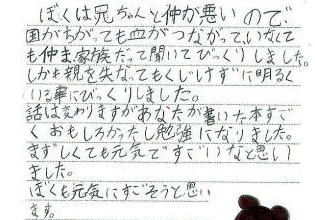 ぼくは兄ちゃんと仲が悪いので、
国がちがっても血がつながっていなくて
も仲ま、家族だって聞いてびっくりしました。
しかも親を失なってもくじけずに明るく
いる事にびっくりしました。
話は変わりますがあなたが書いた本すご
くおもしろかったし勉強になりました。
まずしくても元気ですごいなと思い
ました。
ぼくも元気にすごそうと思い
ます。